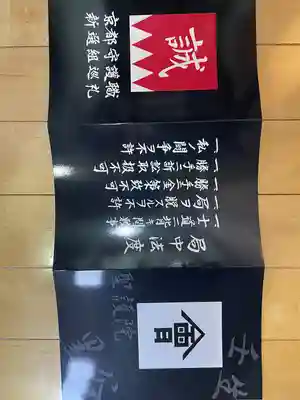 誠
京都守護職
新選組巡礼
局中法度
一、士道ニ背キ間敷事
一、局ヲ脱スルヲ不許
一、勝手ニ金策致不可
一、勝手ニ訴訟取扱不可
一、私ノ闘争ヲ不許
壬生
會
聖護院
黒谷